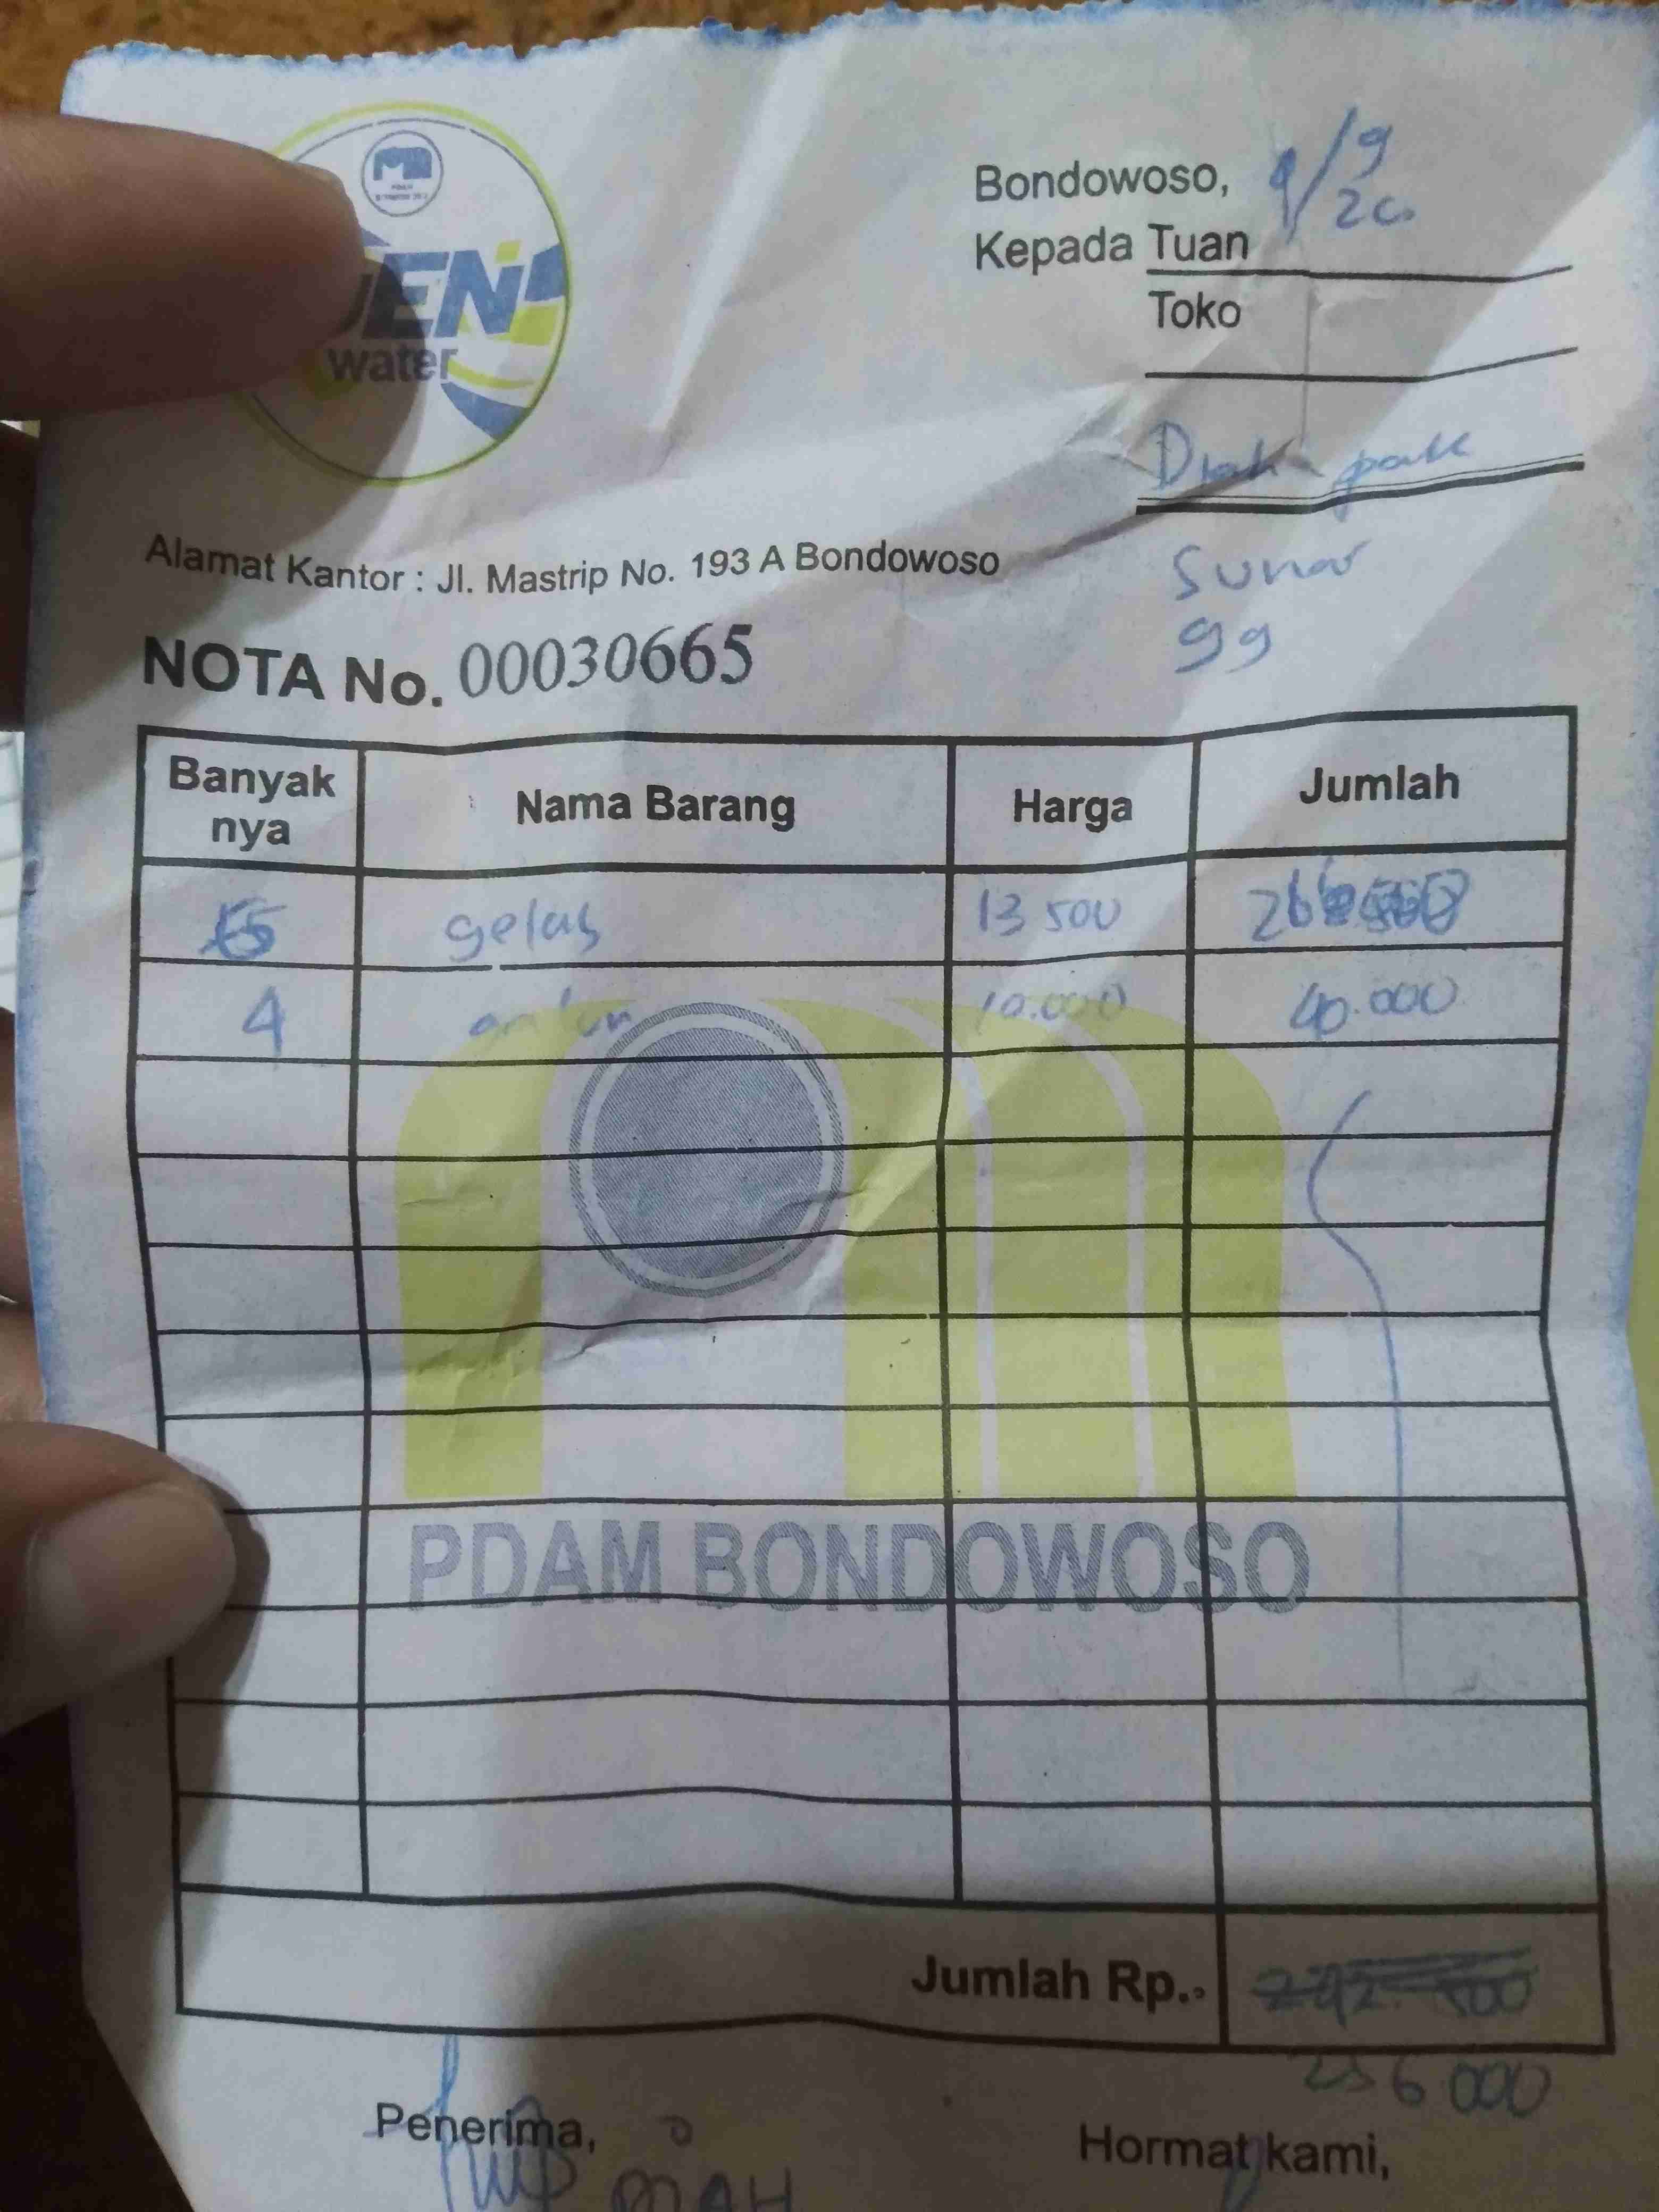 PDAM
JEN
water
Bondowoso, 9/9
20
Kepada Tuan
Toko
pak
Sunar
99
Alamat Kantor : Jl. Mastrip No. 193 A Bondowoso
NOTA No. 00030665
Banyak nya Nama Barang Harga Jumlah
gelas 13 500
4 10.000 40.000
PDAM BONDOWOSO
Jumlah Rp. 292 500
256 000
Penerima, Hormat kami,